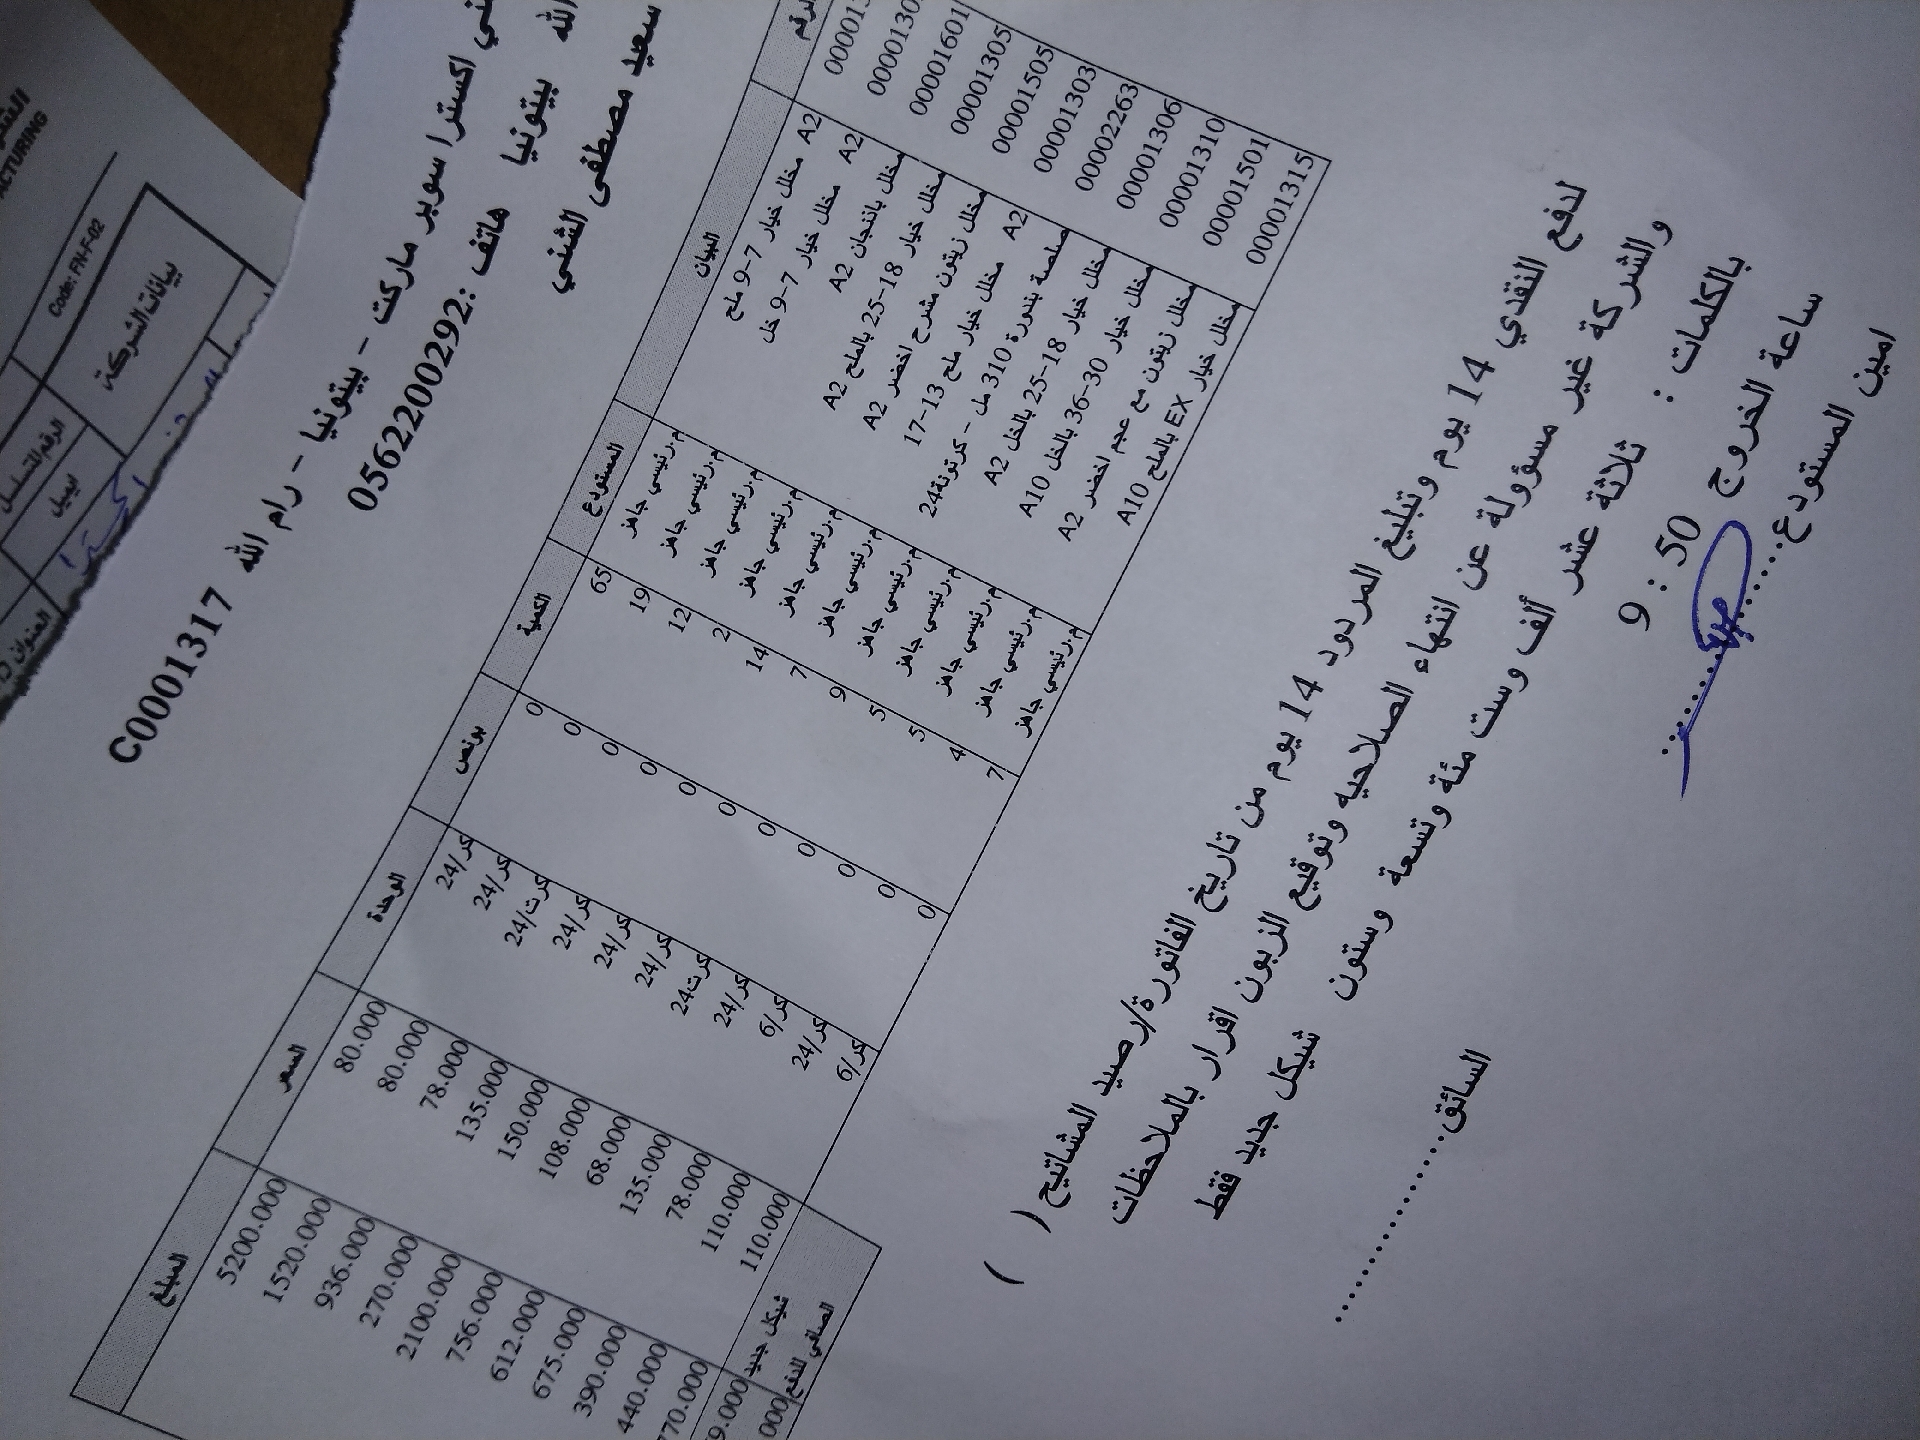 ACTURING
Code: FN-F-02
بيانات الشركة
الرقم المتسلسل
ايميل
العنوان
اكسترا
C0001317 اكسترا سوبر ماركت - بيتونيا - رام الله
الله بيتونيا هاتف :0562200292
سعيد مصطفى الشني
الرقم البيان المستودع الكمية بونص الوحدة السعر المبلغ
000013 مخلل خيار 7-9 ملح A2 م.رئيسي جاهز 65 0 كر/24 80.000 5200.000
0000130 مخلل خيار 7-9 خل A2 م.رئيسي جاهز 19 0 كر/24 80.000 1520.000
00001601 مخلل باذنجان A2 م.رئيسي جاهز 12 0 كرت/24 78.000 936.000
00001305 مخلل خيار 18-25 بالملح A2 م.رئيسي جاهز 2 0 كر/24 135.000 270.000
00001505 مخلل زيتون مشرح اخضر A2 م.رئيسي جاهز 14 0 كر/24 150.000 2100.000
00001303 مخلل خيار ملح 13-17 A2 م.رئيسي جاهز 7 0 كر/24 108.000 756.000
00002263 صلصة بندورة 310 مل - كرتونة24 م.رئيسي جاهز 9 0 كرت24 68.000 612.000
00001306 مخلل خيار 18-25 بالخل A2 م.رئيسي جاهز 5 0 كر/24 135.000 675.000
00001310 مخلل خيار 30-36 بالخل A10 م.رئيسي جاهز 5 0 كر/6 78.000 390.000
00001501 مخلل زيتون مع عجم اخضر A2 م.رئيسي جاهز 4 0 كر/24 110.000 440.000
00001315 مخلل خيار EX بالملح A10 م.رئيسي جاهز 7 0 كر/6 110.000 770.000
شيكل جديد 9.000
الصافي للدفع 000
لدفع النقدي 14 يوم وتبليغ المردود 14 يوم من تاريخ الفاتورة/رصيد المشاتيح ( )
والشركة غير مسؤولة عن انتهاء الصلاحيه وتوقيع الزبون اقرار بالملاحظات
بالكلمات : ثلاثة عشر ألف وست مئة وتسعة وستون شيكل جديد فقط
ساعة الخروج 9 : 50
امين المستودع.................... السائق....................